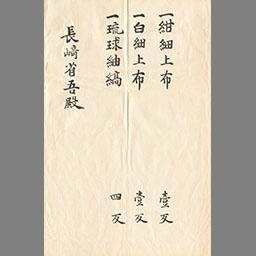 一紺細上布 壹反
一白細上布 壹反
一琉球紬縞 四反
長崎省吾殿